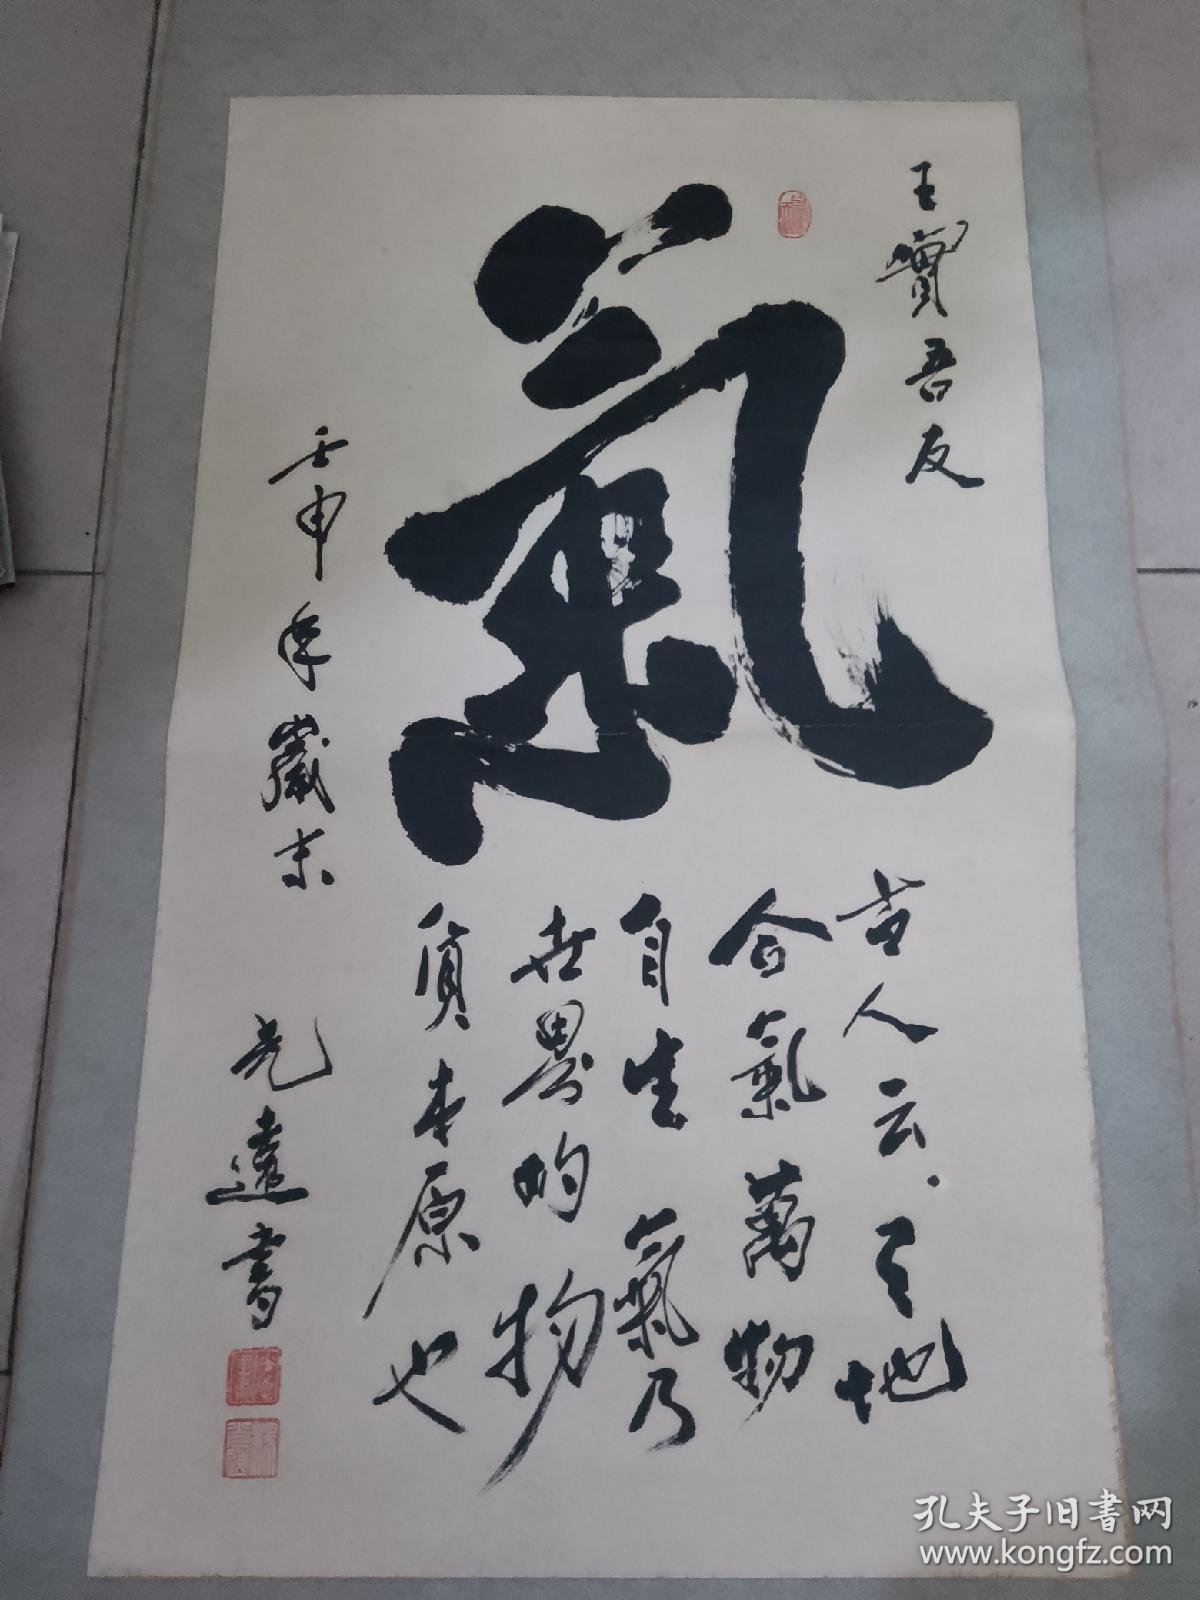 王寶吾友
氣
古人云、天地
合氣萬物
自生氣乃
世界的物
質本原也
壬申年歲末
光遠書
孔夫子旧書网
www.kongfz.com